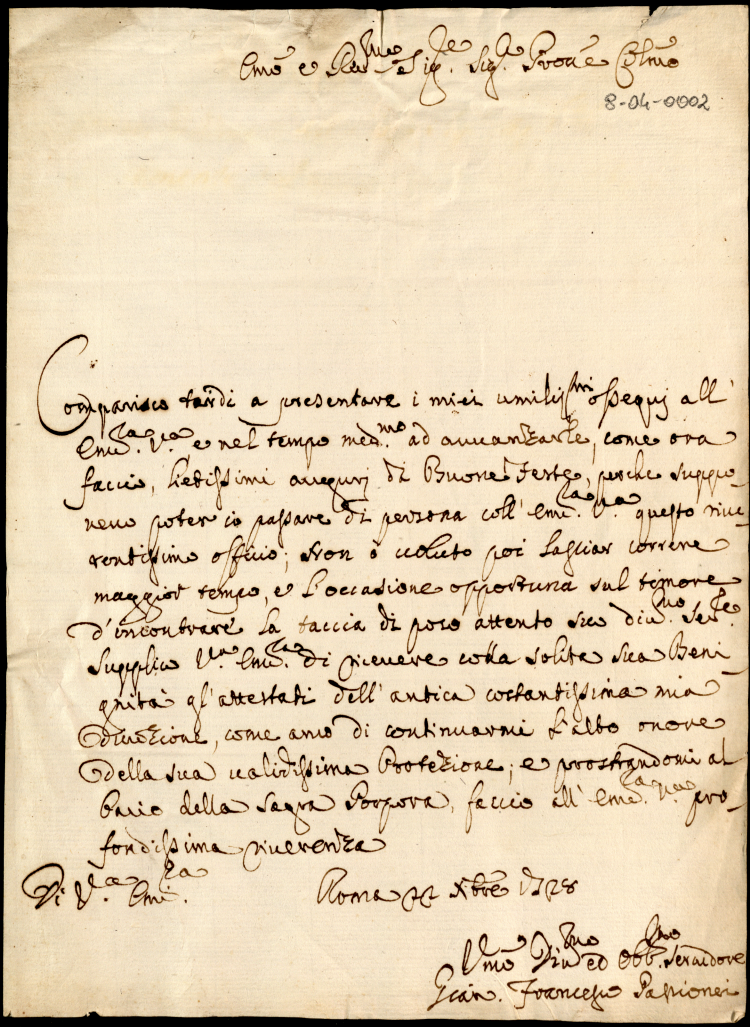 Emo e Rmo Sigre Sigr Prone Colmo
8-04-0002
Comparisco tardi a presentare i miei umilissmi ossequj all'
Emza Vra e nel tempo medmo ad avvanzarle, come ora
faccio, lietissimi augurj di Buone Feste, perche suppo-
nevo poter io passare di persona coll' Emza Vra questo rive-
rentissimo officio; Non ò voluto poi lasciar correre
maggior tempo, e l'occasione opportuna sul timore
d'incontrare la taccia di poco attento suo divmo serre.
Supplico Vra Emza di ricevere colla solita sua Beni-
gnità gl'attestati dell'antica costantissima mia
divozione, come anco di continuarmi l'alto onore
della sua validissima Protezione; e prostrandomi al
bacio della Sagra Porpora, faccio all' Emza Vra pro-
fondissima riverenza
Di Vra Emza
Roma 22 Xbre 1728
Umo Divmo ed Obbmo Servidore
Gian. Francesco Passionei